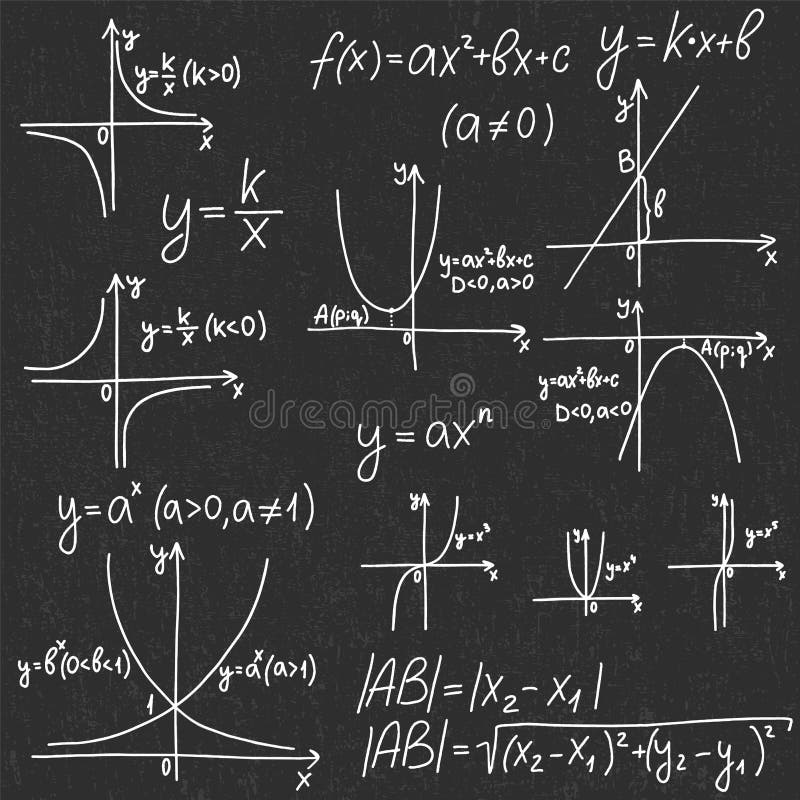 y
y=k/x (k>0)
0
x
f(x)=ax²+вx+c
(a≠0)
y=k·x+в
y
B
в
0
x
y=k/x
y
y=ax²+вx+c
D<0, a>0
A(p;q)
0
x
y
y=k/x (k<0)
0
x
y
0
A(p;q)
x
y=ax²+вx+c
D<0, a<0
dreamstime.com
y=axⁿ
y=aˣ (a>0, a≠1)
y
y=вˣ(0<в<1)
y=aˣ(a>1)
1
0
x
y
y=x³
0
x
y
y=x⁴
0
x
y
y=x⁵
0
x
|AB|=|x₂-x₁|
|AB|=√(x₂-x₁)²+(y₂-y₁)²